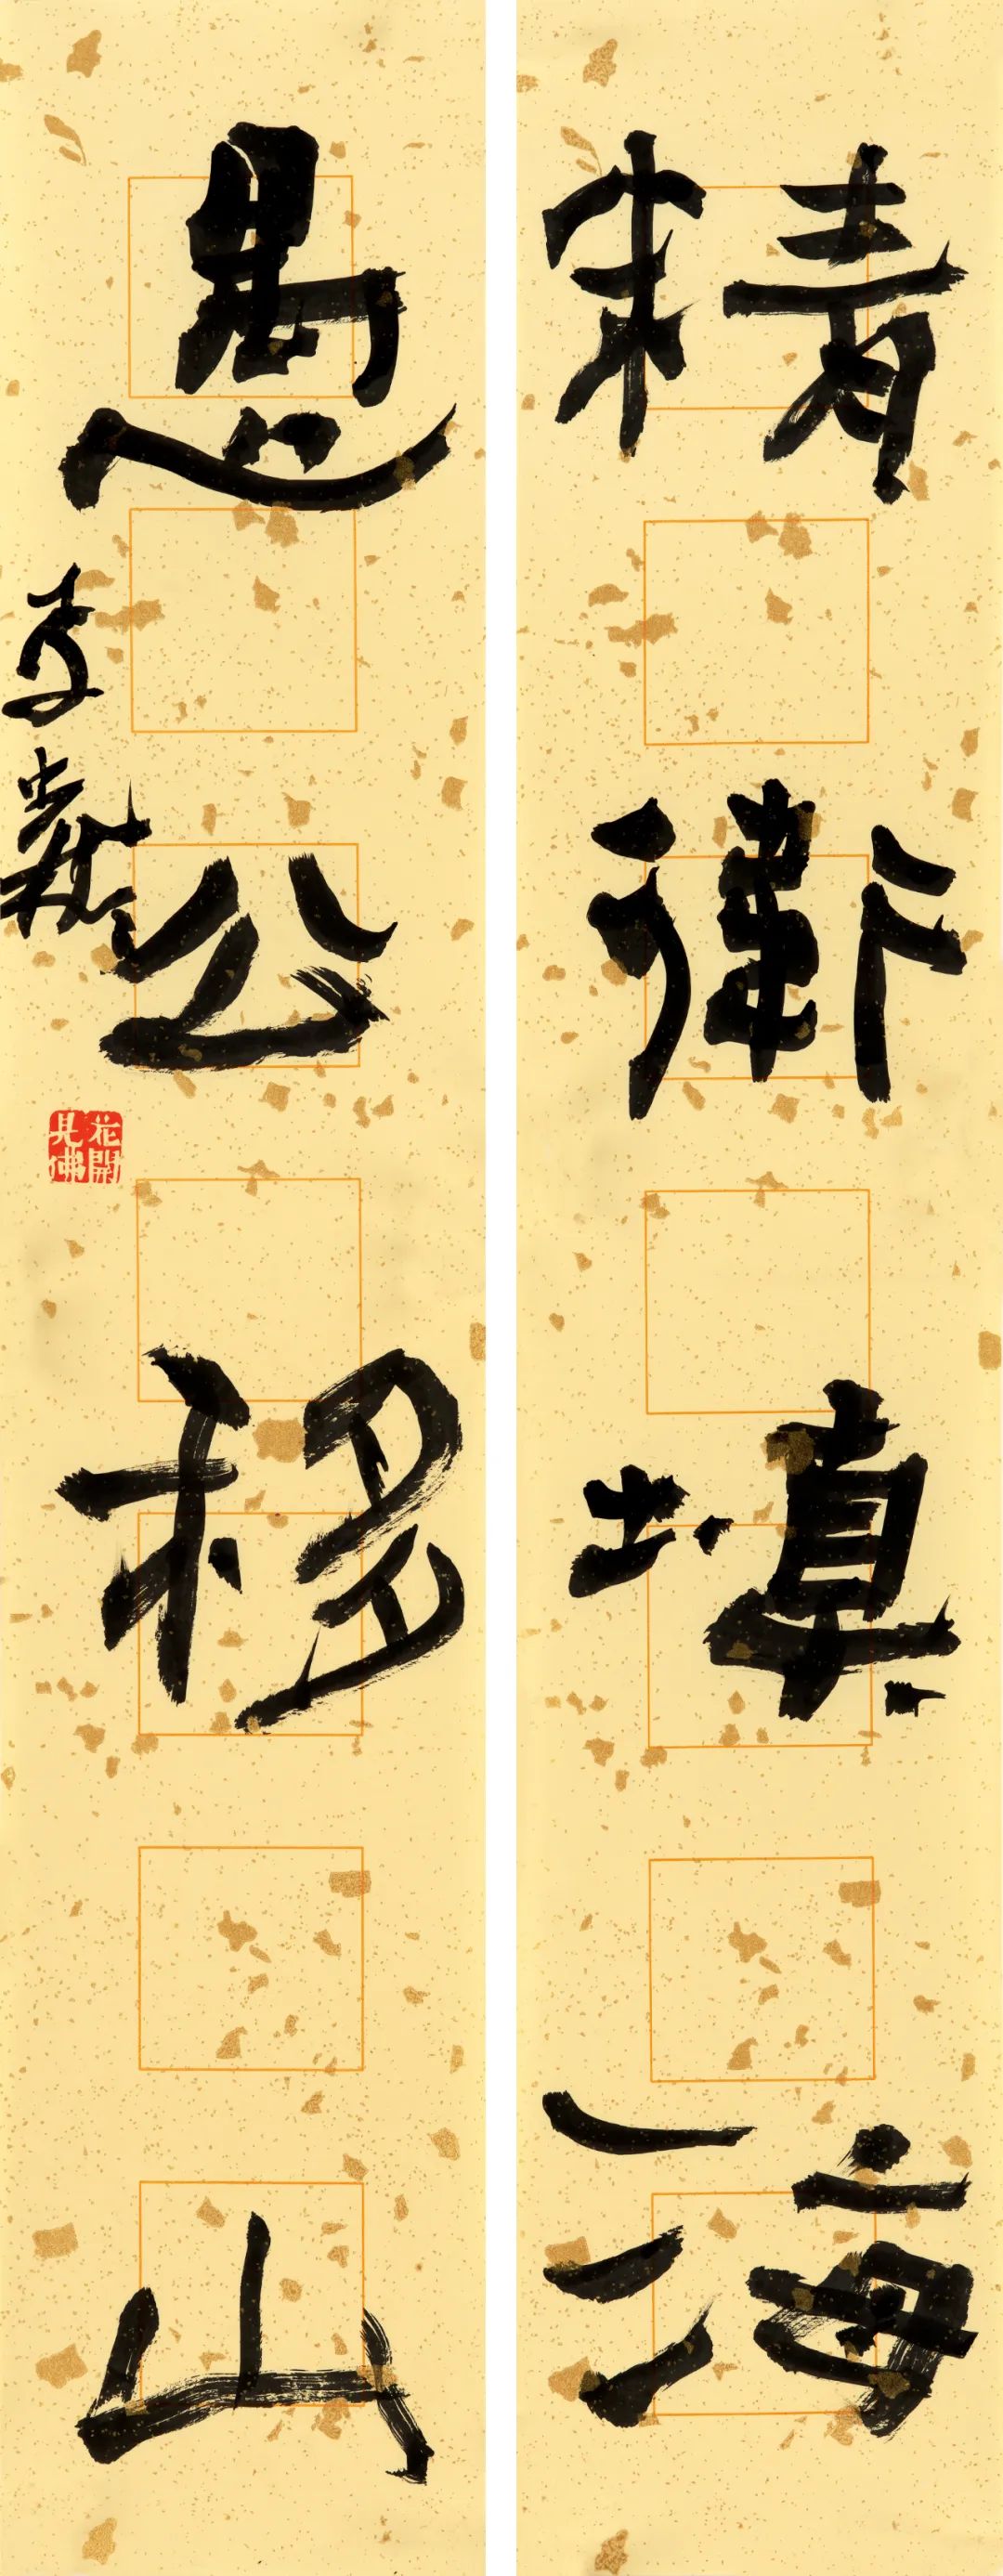 精衛填海
愚公移山
李
花開見佛